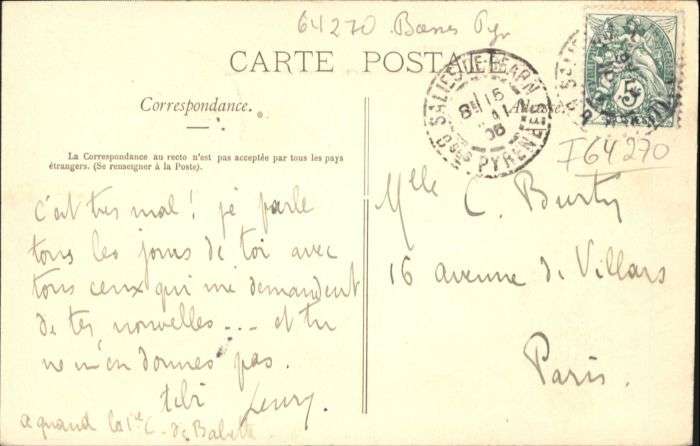 64270 Basses Pyr
CARTE POSTALE
Correspondance.
Adresse
La Correspondance au recto n'est pas acceptée par tous les pays
étrangers. (Se renseigner à la Poste).
SALIES-DE-BÉARN
8H 15
Bses PYRÉNÉES
5
I 64270
c'est tres mal! je parle
tous les jours de toi avec
tous ceux qui me demandent
de tes nouvelles... et tu
ne m'en donnes pas.
à quand la 1re C. de Babette
Mlle C. Burty
16 avenue de Villars
Paris.